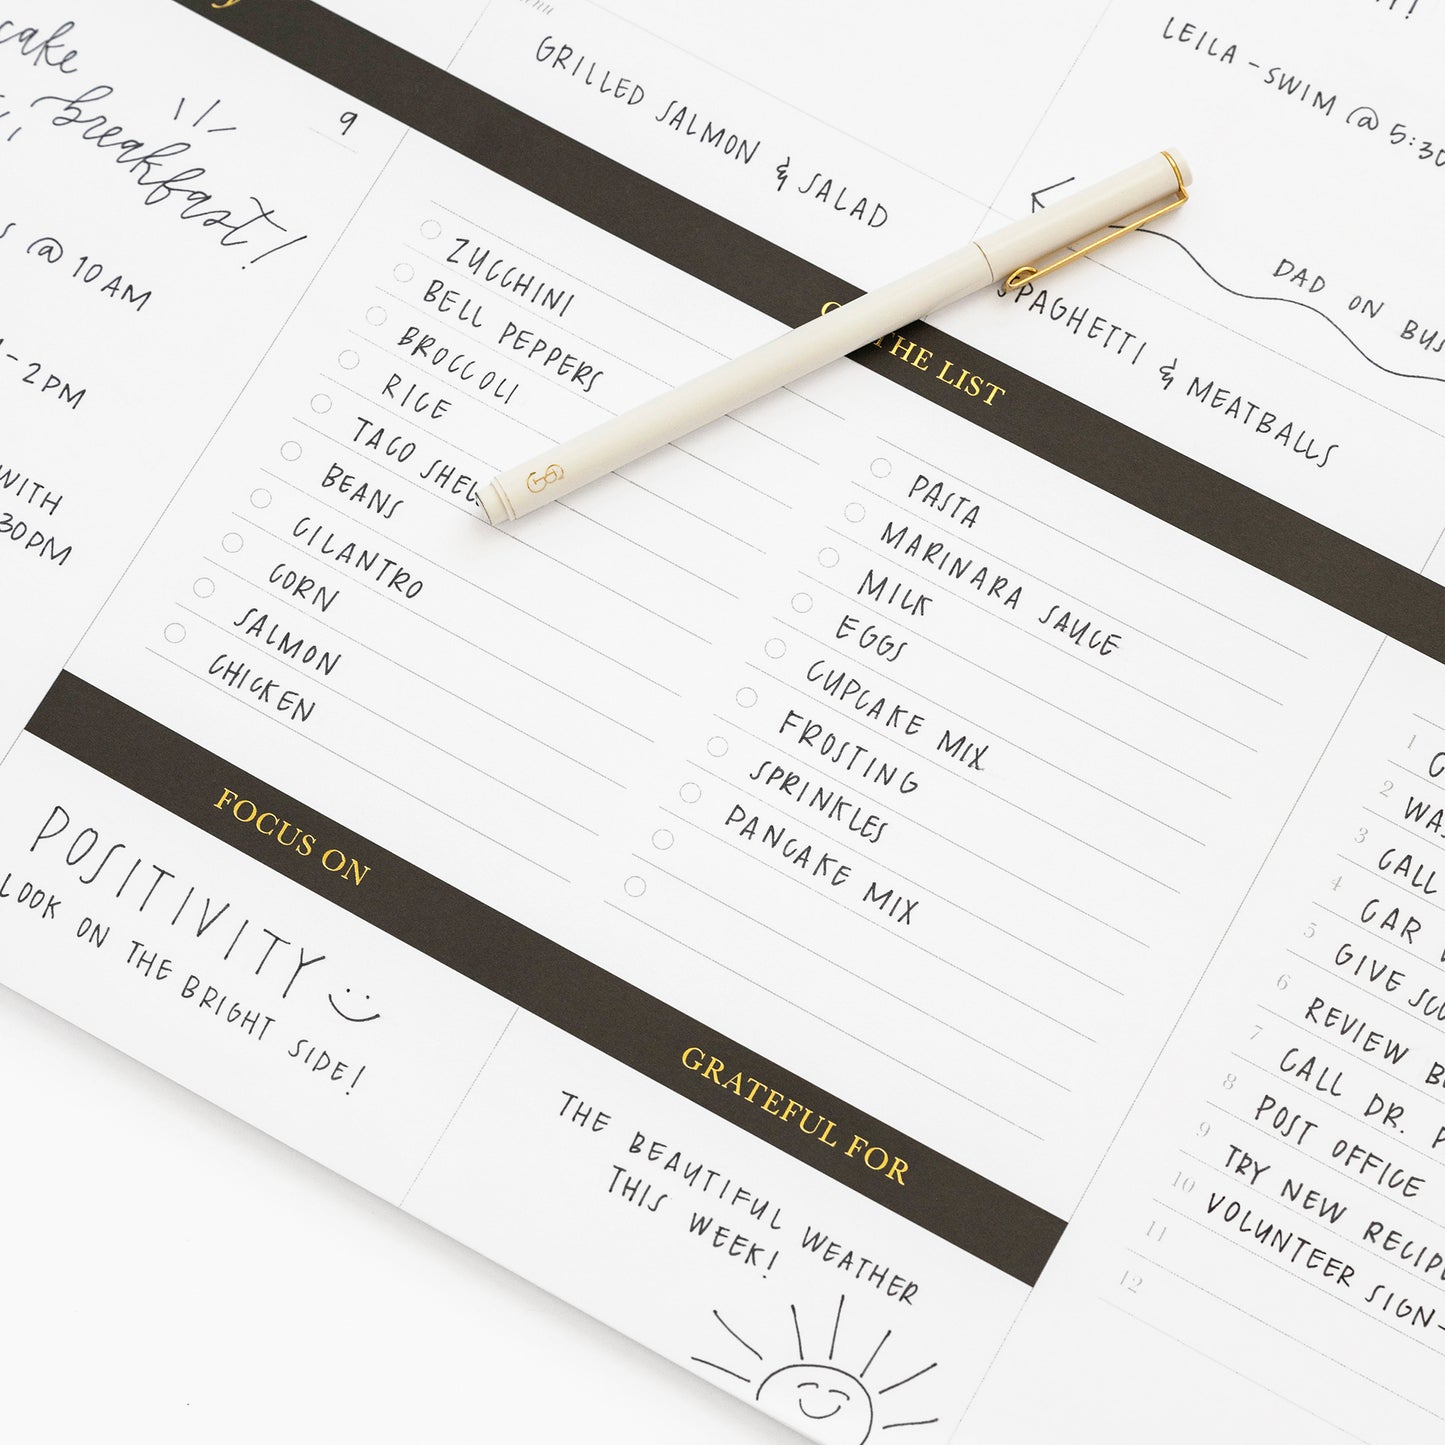 cake
breakfast!
9
@ 10 AM
- 2 PM
WITH
30PM
menu
GRILLED SALMON & SALAD
SPAGHETTI & MEATBALLS
LEILA - SWIM @ 5:30
DAD ON BUS
THE LIST
ZUCCHINI
BELL PEPPERS
BROCCOLI
RICE
TACO SHEL
BEANS
CILANTRO
CORN
SALMON
CHICKEN
PASTA
MARINARA SAUCE
MILK
EGGS
CUPCAKE MIX
FROSTING
SPRINKLES
PANCAKE MIX
FOCUS ON
POSITIVITY
LOOK ON THE BRIGHT SIDE!
GRATEFUL FOR
THE BEAUTIFUL WEATHER
THIS WEEK!
1
2 WA
3 CALL
4 CAR
5 GIVE
6 REVIEW
7 CALL DR.
8 POST OFFICE
9 TRY NEW RECIP
10 VOLUNTEER SIGN-
11
12